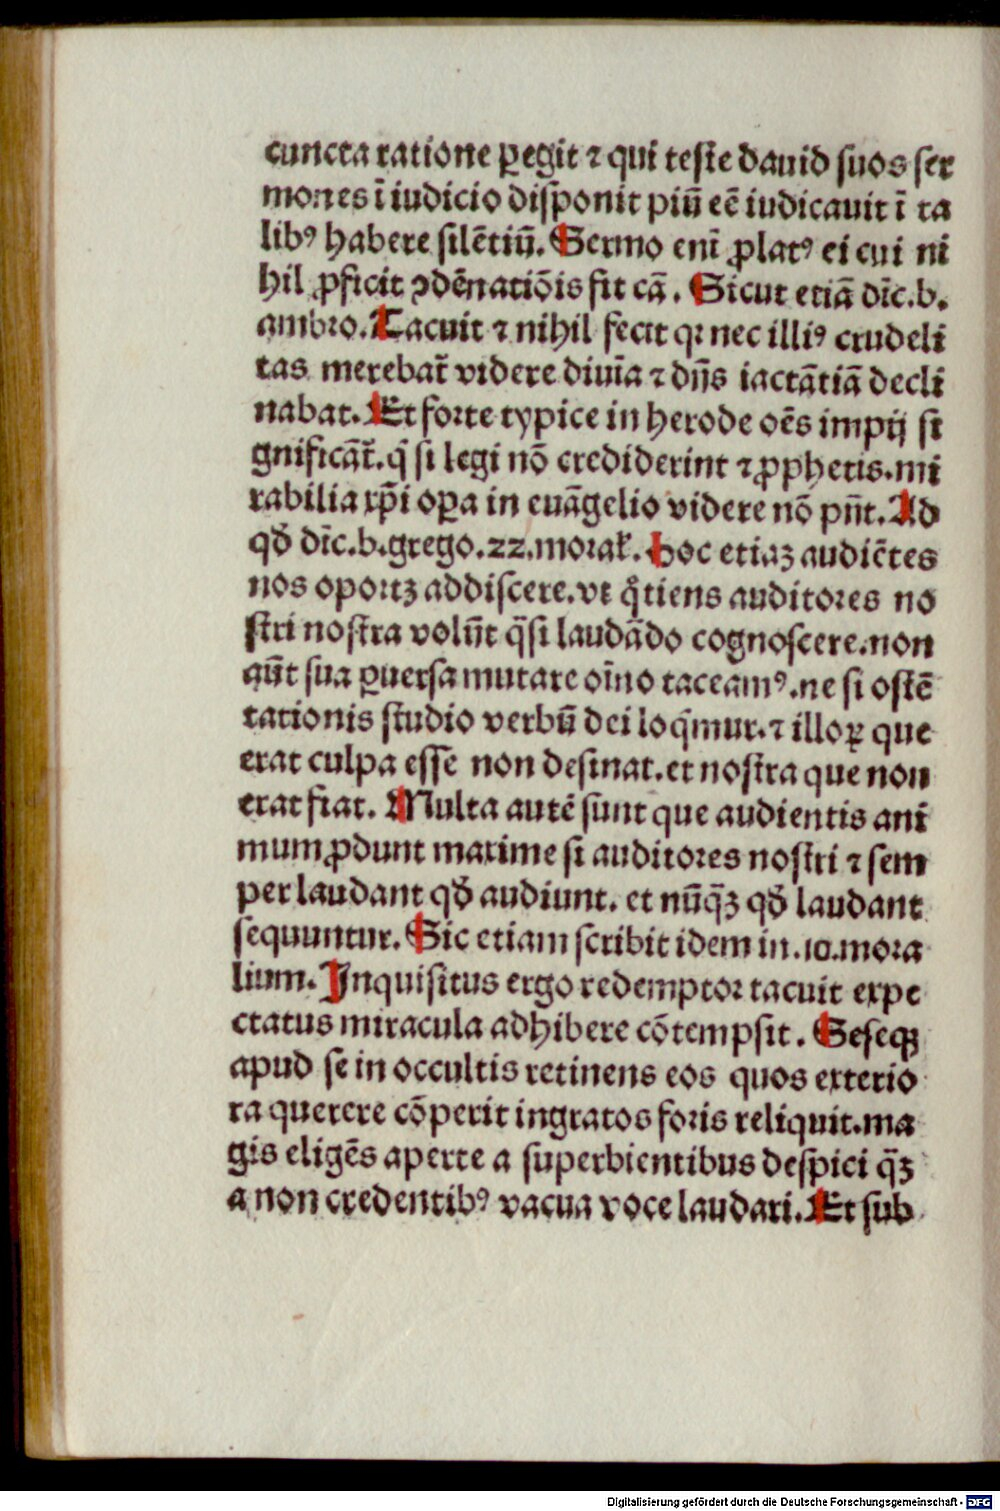 cuncta ratione ꝑegit ⁊ qui teste dauid suos ser
mones ī iudicio disponit piū eē iudicauit ī ta
libꝰ habere silētiū. Sermo enī ꝓlatꝰ ei cui ni
hil ꝓficit ꝯdēnatiōis fit cā. Sicut etiā dīc.b.
ambro. Tacuit ⁊ nihil fecit qꝛ nec illiꝰ crudeli
tas merebat̄ videre diuīa ⁊ dn̄s iactātiā decli
nabat. Et forte typice in herode oēs impij si
gnificāt̄. q̇ si legi nō crediderint ⁊ ꝓphetis. mi
rabilia xp̄i oꝑa in euāgelio videre nō pn̄t. Ad
qđ dīc.b.grego.22.moraƚ. Hoc etiaꝫ audiētes
nos oportꝫ addiscere. vt q̊tiens auditores no
stri nostra volūt q̄si laudādo cognoscere. non
aūt sua ꝑuersa mutare oīno taceamꝰ. ne si ostē
tationis studio verbū dei loq̄mur. ⁊ illoꝝ que
erat culpa esse non desinat. et nostra que non
erat fiat. Multa autē sunt que audientis ani
mum ꝓdunt maxime si auditores nostri ⁊ sem
per laudant qđ audiunt. et nūq̄ꝫ qđ laudant
sequuntur. Sic etiam scribit idem in.10.mora
lium. Inquisitus ergo redemptor tacuit expe
ctatus miracula adhibere cōtempsit. Seseqꝫ
apud se in occultis retinens eos quos exterio
ra querere cōperit ingratos foris reliquit. ma
gis eligēs aperte a superbientibus despici q̄ꝫ
a non credentibꝰ vacua voce laudari. Et sub
Digitalisierung gefördert durch die Deutsche Forschungsgemeinschaft - DFG